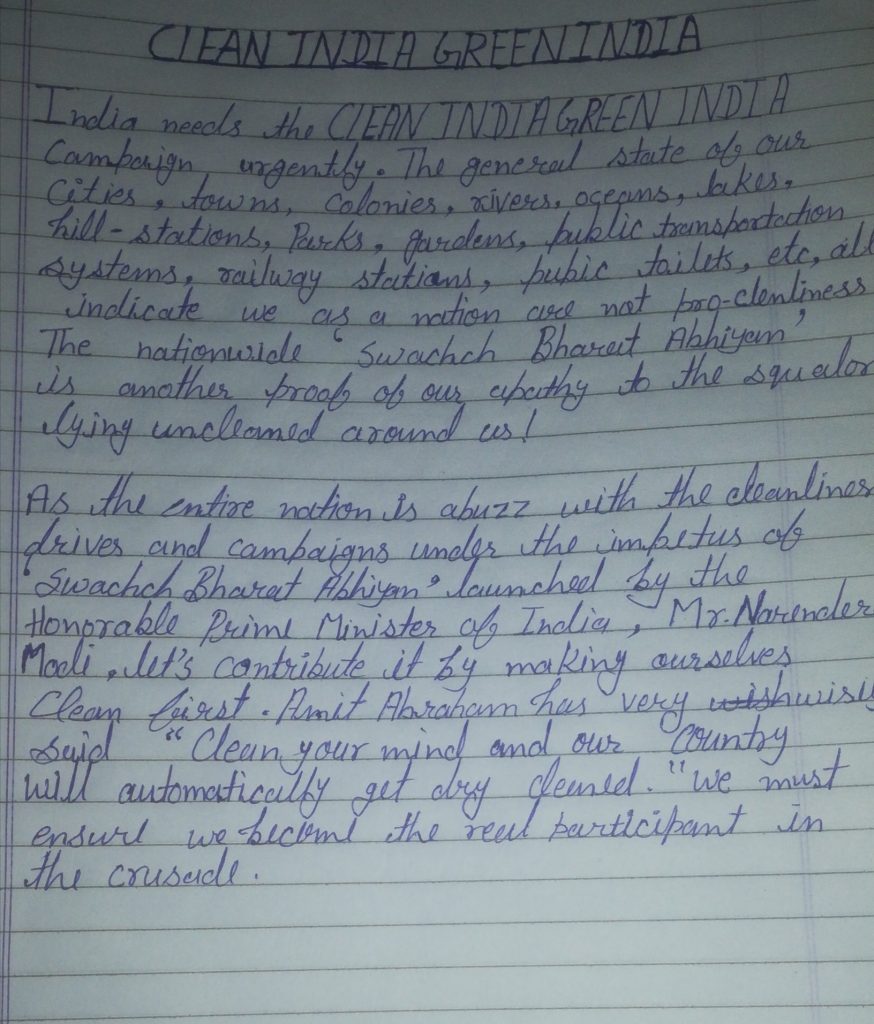 CLEAN INDIA GREEN INDIA
India needs the CLEAN INDIA GREEN INDIA
Campaign urgently. The general state of our
Cities, towns, colonies, rivers, oceans, lakes,
hill-stations, Parks, gardens, public transportation
systems, railway stations, pubic toilets, etc, all
indicate we as a nation are not pro-clenliness
The nationwide 'Swachch Bharat Abhiyan'
is another proof of our apathy to the squalor
lying uncleaned around us!
As the entire nation is abuzz with the cleanlines
drives and campaigns under the impetus of
'Swachch Bharat Abhiyan' launched by the
Honorable Prime Minister of India, Mr. Narender
Modi, let's contribute it by making ourselves
Clean first. Amit Abraham has very wish wisly
said "Clean your mind and our Country
will automatically get dry cleaned." we must
ensure we become the real participant in
the crusade.